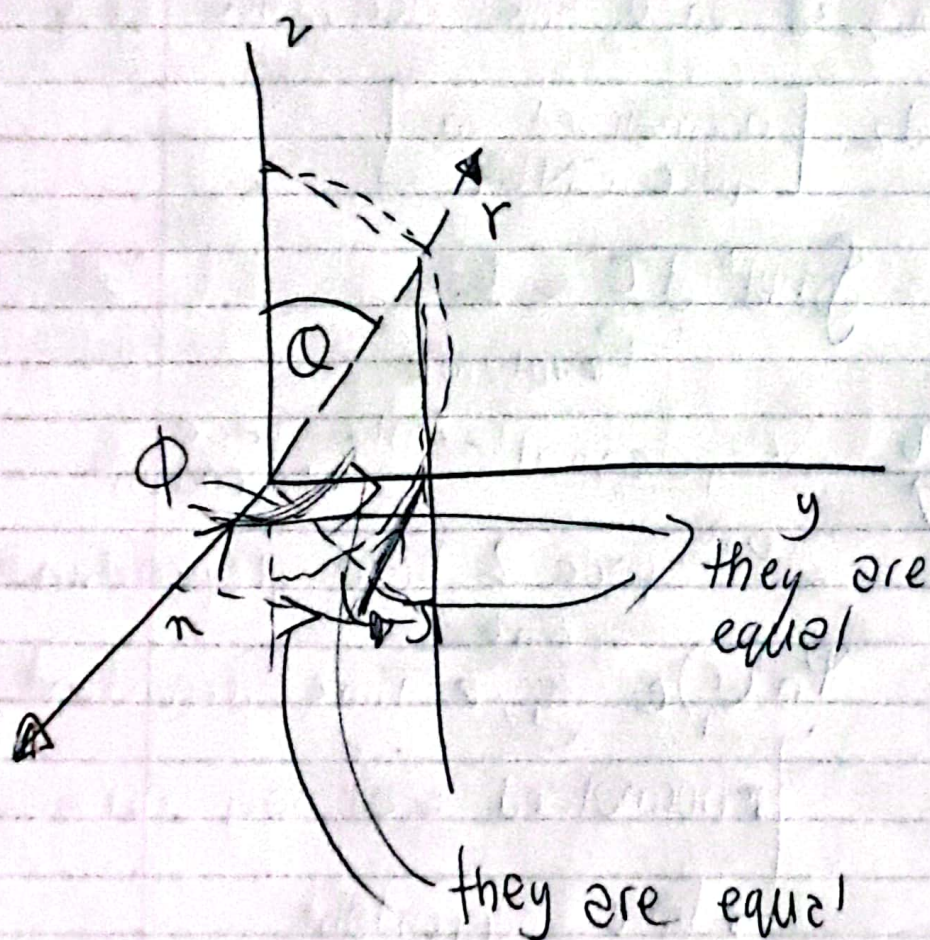 z
r
θ
ϕ
y
they are
equal
x
they are equal